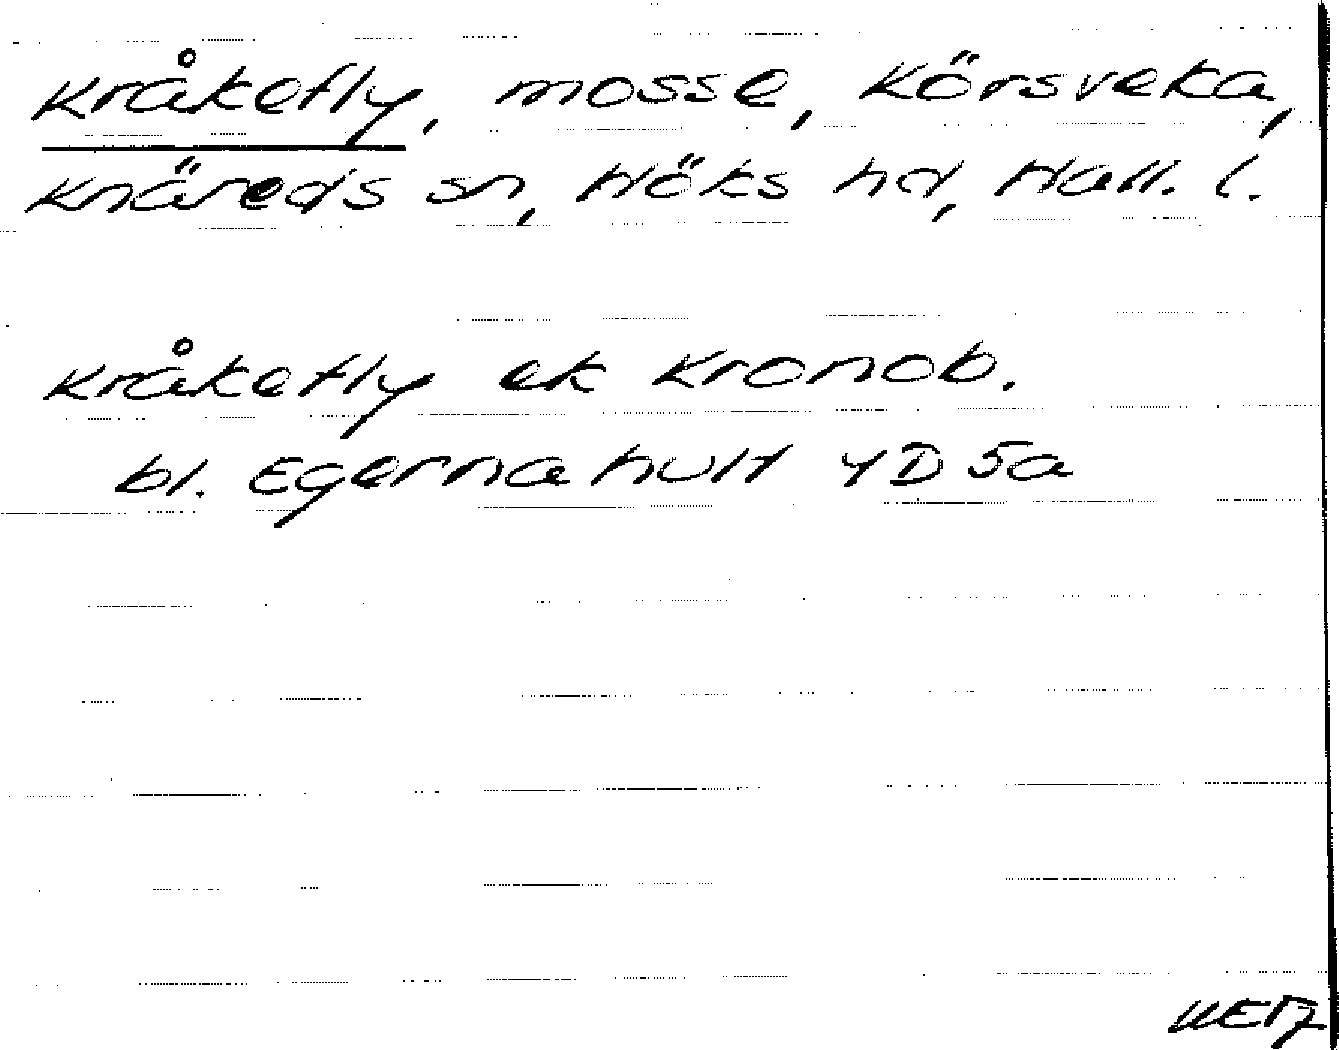 Kråkefly, mosse, Körsveka,
Knäreds sn, Höks hd, Hall. l.
Kråkefly ek Kronob.
bl. Egernahult 4D 5a